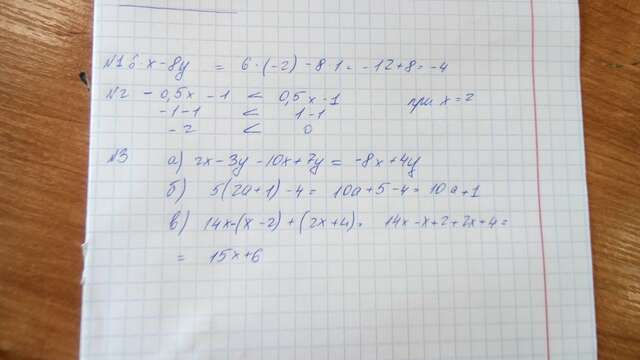 №1 6 x - 8y = 6 · (-2) - 8 · 1 = -12 + 8 = -4
№2 -0,5x - 1 < 0,5x - 1 при x = 2
-1 - 1 < 1 - 1
-2 < 0
№3 а) 2x - 3y - 10x + 7y = -8x + 4y
б) 5(2a + 1) - 4 = 10a + 5 - 4 = 10a + 1
в) 14x - (x - 2) + (2x + 4) = 14x - x + 2 + 2x + 4 =
= 15x + 6